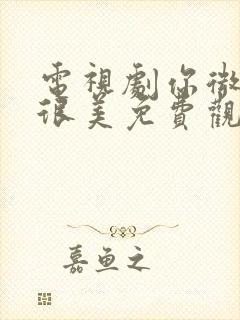 電視劇你微
很美免費觀
嘉魚之